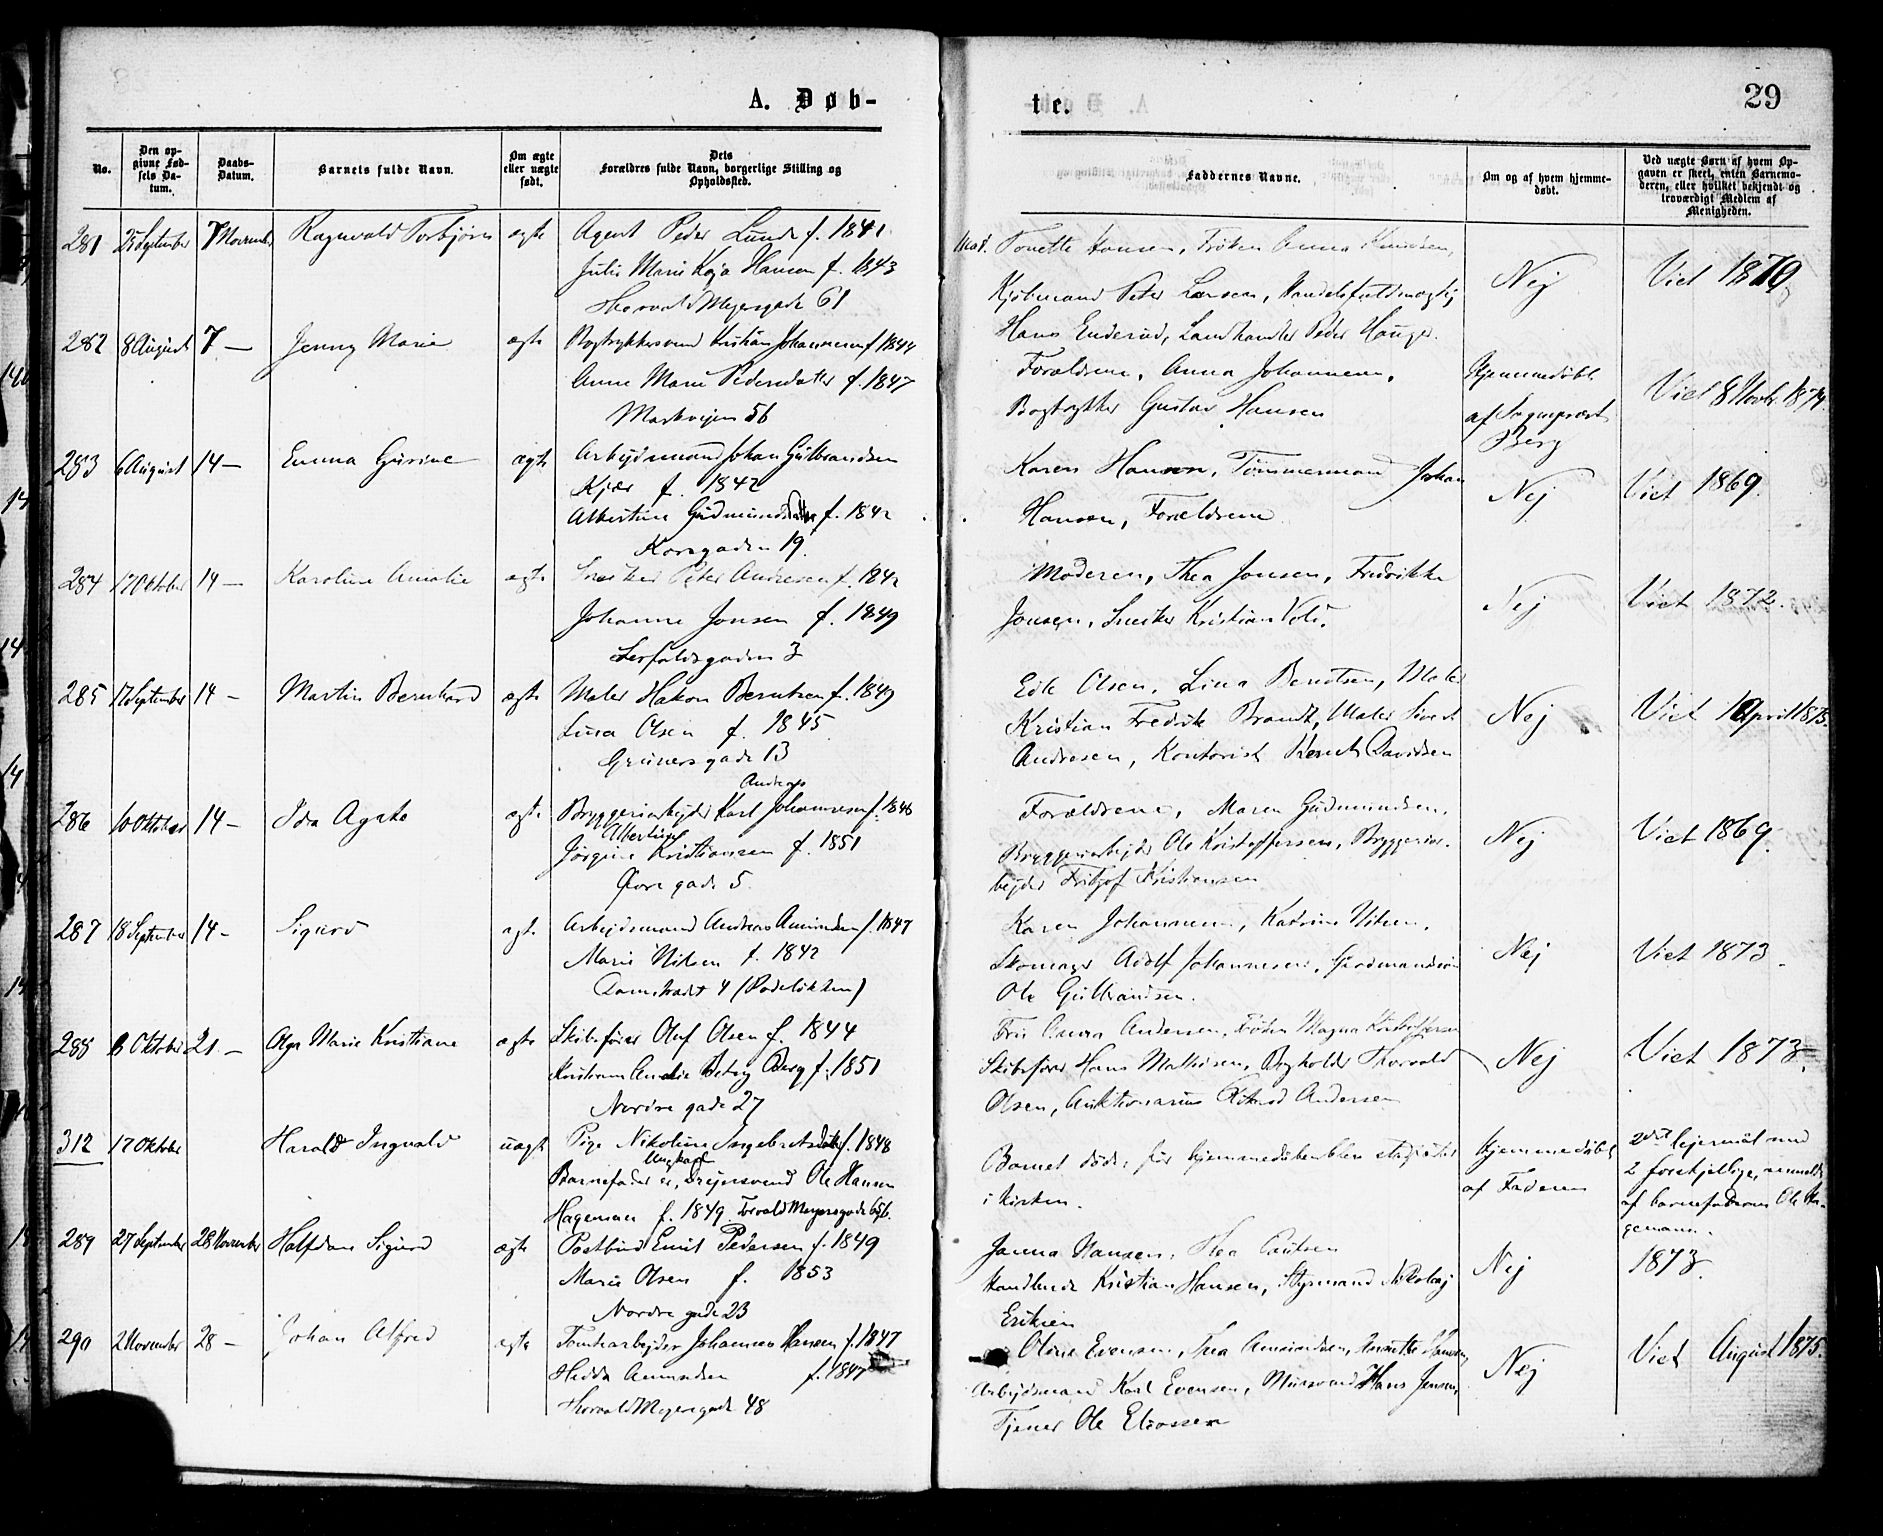 A. Døb-
te.
29
No.
Den op-
givne Fød-
sels Da-
tum.
Daabs-
Datum.
Barnets fulde Navn.
Om ægte
eller uægte
født.
Dets
Forældres fulde Navn, borgerlige Stilling og
Opholdssted.
Faddernes Navne.
Om og af hvem hjemme-
døbt.
Ved uægte Børn af hvem Op-
gaven er skeet, enten Barnemo-
deren, eller hvilket bekjendt og
troværdigt Medlem af
Menigheden.
281 25 September 7 November Ragnvald Torbjørn ægte Agent Peder Lund f. 1841
Julie Marie Kaja Hansen f. 1843
Thorvald Meyersgade 61
Mad. Tonette Hansen, Frøken Anna Knudsen,
Kjøbmand Peter Larsen, Handelsfuldmægtig
Hans Enderud, Landhandler Peder Hauger.
Nej
Viet 1870
282 8 August 7 — Jenny Marie ægte Bogtrykkersvend Kristian Johannesen f. 1844
Anne Marie Pedersdatter f. 1847
Markveien 56
Forældrene, Anna Johannesen,
Bogtrykker Gustav Hansen
Hjemmedøbt
af Sognepræst
Berg
Viet 8 Novb. 1874.
283 6 August 14 — Emma Gurine ægte Arbejdsmand Johan Gulbrandsen
Kjær f. 1842
Albertine Gudmundsdatter f. 1842
Korsgaden 19
Karen Hansen, Tømmermand Johan
Hansen, Forældrene
Nej
Viet 1869.
284 17 Oktober 14 — Karoline Amalie ægte Snedker Peter Andresen f. 1842
Johanne Jonsen f. 1849
Lerfaldsgaden 3
Moderen, Thea Jonsen, Fredrikke
Jonsen, Snedker Kristian
Nej
Viet 1872.
285 17 September 14 — Martin Bernhard ægte Maler Hakon Berntsen f. 1849
Lina Olsen f. 1845
Grünersgade 13
Edle Olsen, Lina Berntsen, Maler
Kristian Fredrik Brandt, Maler Sivert
Andresen, Kontorist Bernt Davidsen
Nej
Viet 10 April 1875.
286 10 Oktober 14 — Ida Agate ægte Bryggeriarbejder Karl Andreas Johannesen f. 1848
Jørgine Albertine Kristiansen f. 1851
Øvregade 5.
Forældrene, Maren Gudmundsen,
Bryggeriarbejder Ole Kristoffersen, Bryggeriar-
bejder Fritjof Kristiansen
Nej
Viet 1869.
287 18 September 14 — Sigurd ægte Arbejdsmand Andreas Amundsen f. 1847
Marie Nilsen f. 1842
Damstrædet 4 (Rodeløkken)
Karen Johannesen, Katrine Nilsen,
Skomager Adolf Johannesen, Gardmandssøn
Ole Gulbrandsen.
Nej
Viet 1873
288 13 Oktober 21 — Olga Marie Kristiane ægte Skibsfører Oluf Olsen f. 1844
Kristiane Amalie Betsy Berg f. 1851
Nordre gade 27
Fru Anna Andersen, Frøken Magna Kristoffersen
Skibsfører Hans Mathisen, Bogholder Thorvald
Olsen, Auktionarius Andersen
Nej
Viet 1873.
312 17 Oktober Harald Ingvald uægte Pige Nikoline Ingebretsdatter f. 1848
Barnefader er Ungkarl Drejersvend Ole Hansen
Hagemann f. 1849. Torvald Meyersgade 65b.
Barnet døde før hjemmedåben blev stadfæstet
i kirken.
Hjemmedøbt
af Faderen
2det lejermål med
2 forskjellige, anmeldt
af barnefaderen Ole Ha-
gemann.
289 27 September 28 November Halfdan Sigurd ægte Postbud Emil Pedersen f. 1849
Marie Olsen f. 1853
Nordre gade 23
Janna Hansen, Thea Paulsen
Handlende Kristian Hansen, Styrmand Nikolaj
Eriksen
Nej
1873.
290 2 November 28 — Johan Alfred ægte Tomtearbejder Johannes Hansen f. 1847
Hedda Amundsen f. 1847
Thorvald Meyersgade 48
Oline Evensen, Thea Amundsen, Annette Hansen,
Arbejdsmand Karl Evensen, Mursvend Hans Jensen,
Tjener Ole Eliassen
Nej
Viet August 1875.